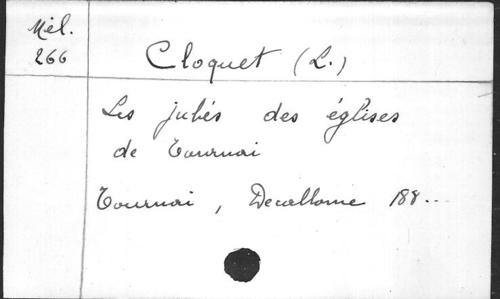 Mél.
266
Cloquet (L.)
Les jubés des églises
de Tournai
Tournai, Decallonne 188..